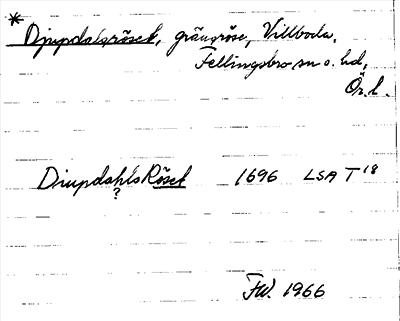 * Djupdalsröset, gränsröse, Villboda,
Fellingsbro sn o. hd,
Ör. l.
Diupdahls Röset 1696 LSA T 18
?
FW. 1966